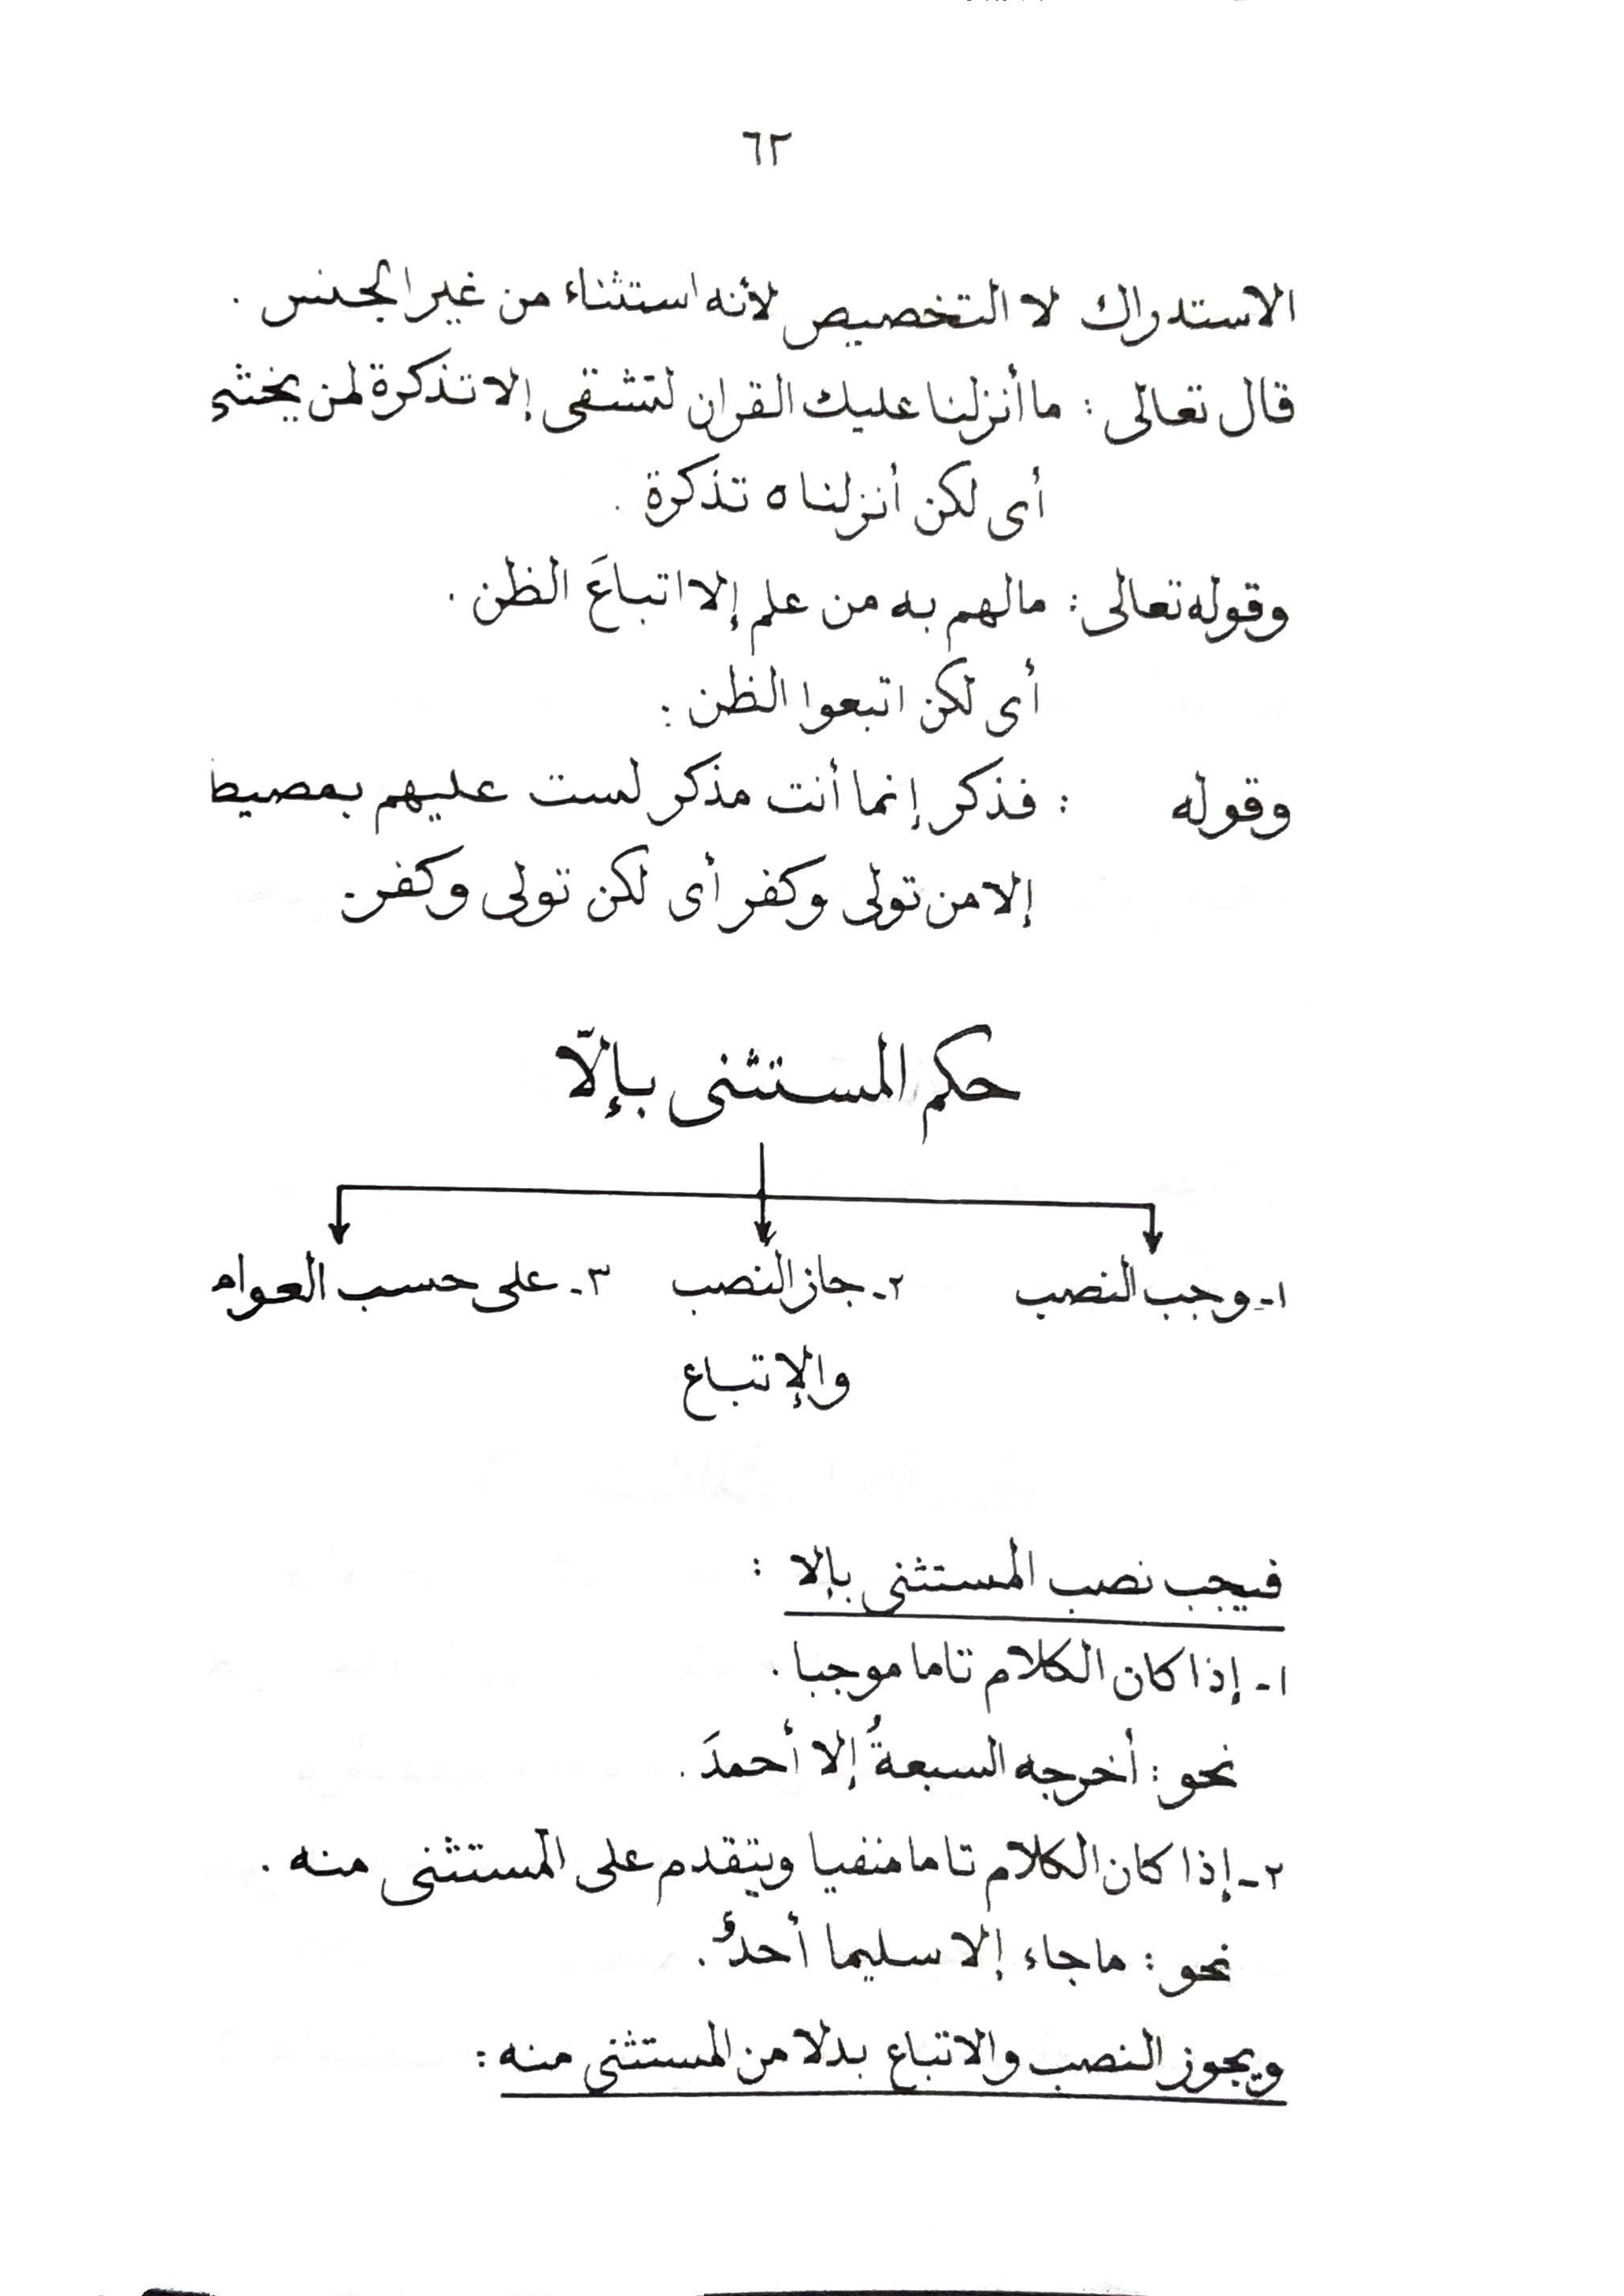 ٦٢
الاستدراك لا التخصيص لأنه استثناء من غير الجنس .
قال تعالى : ما أنزلنا عليك القران لتشقى إلا تذكرة لمن يخشى
أى لكن أنزلناه تذكرة .
وقوله تعالى : مالهم به من علم إلا اتباعَ الظن .
أى لكن اتبعوا الظن :
وقوله : فذكر إنما أنت مذكر لست عليهم بمصيط
إلا من تولى وكفر أى لكن تولى وكفر .
حكم المستثنى بإلاّ
١- وجب النصب ٢- جاز النصب ٣- على حسب العوام
والإتباع
فيجب نصب المستثنى بإلا :
١- إذا كان الكلام تاما موجبا .
نحو : أخرجه السبعةُ إلا أحمدَ .
٢- إذا كان الكلام تاما منفيا ويتقدم على المستثنى منه .
نحو : ماجاء إلا سليما أحدٌ .
ويجوز النصب والاتباع بدلا من المستثنى منه :